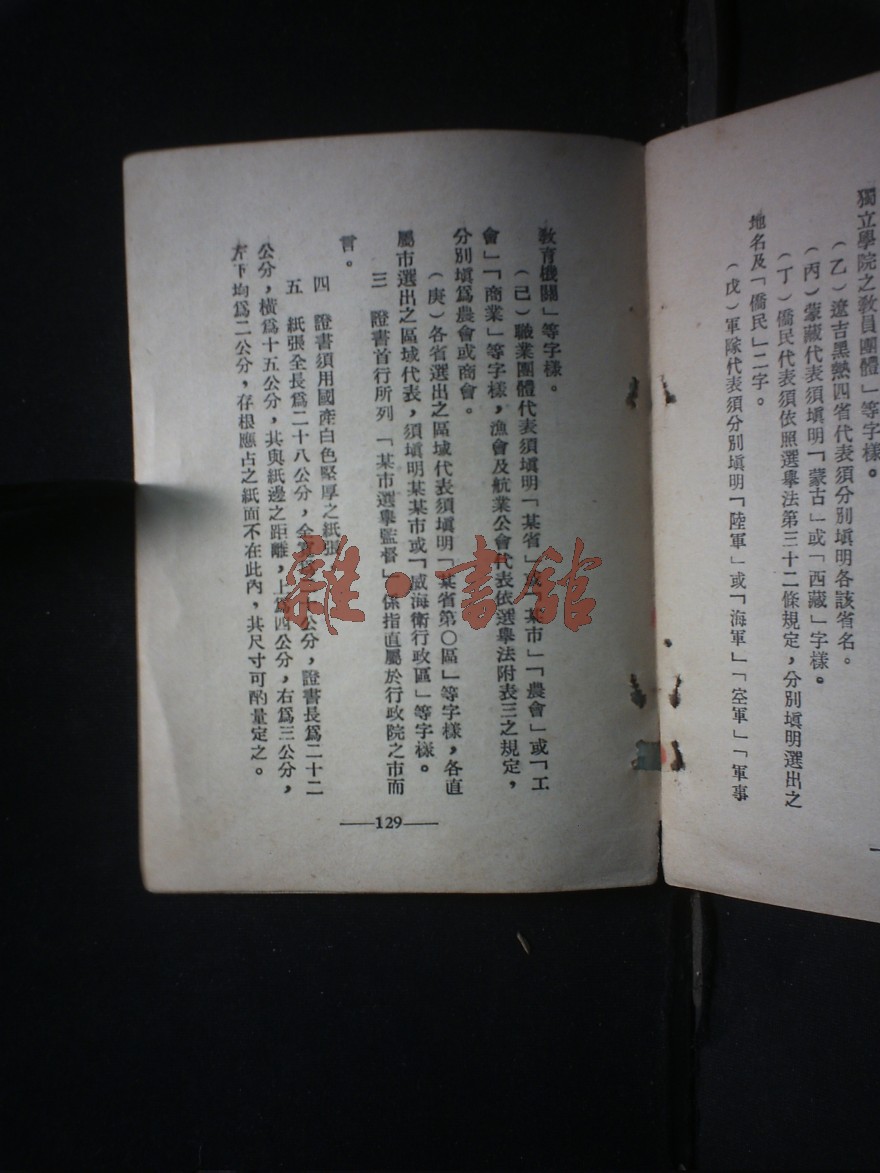 獨立學院之教員團體」等字樣。
（乙）遼吉黑熱四省代表須分別填明各該省名。
（丙）蒙藏代表須填明「蒙古」或「西藏」字樣。
（丁）僑民代表須依照選舉法第三十二條規定，分別填明選出之
地名及「僑民」二字。
（戊）軍隊代表須分別填明「陸軍」或「海軍」「空軍」「軍事
教育機關」等字樣。
（己）職業團體代表須填明「某省」或「某市」「農會」或「工
會」「商業」等字樣，漁會及航業公會代表依選舉法附表三之規定，
分別填爲農會或商會。
（庚）各省選出之區域代表須填明「某省第〇區」等字樣，各直
屬市選出之區域代表，須填明某某市或「威海衛行政區」等字樣。
三　證書首行所列「某市選舉監督」係指直屬於行政院之市而
言。
四　證書須用國產白色堅厚之紙張
五　紙張全長爲二十八公分，全寬 公分，證書長爲二十二
公分，橫爲十五公分，其與紙邊之距離，上爲四公分，右爲三公分，
左下均爲二公分，存根應占之紙面不在此內，其尺寸可酌量定之。
—129—
雜·書館